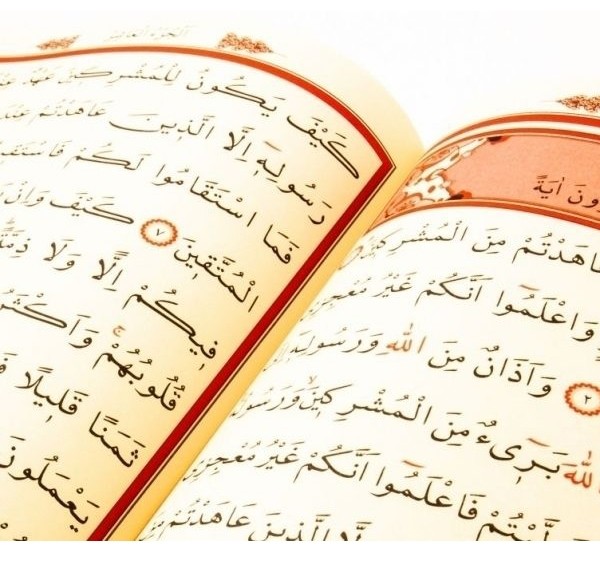 اٰيَةً
عَاهَدْتُمْ مِنَ الْمُشْرِكِينَ
وَاعْلَمُوا اَنَّكُمْ غَيْرُ مُعْجِزِي
٢ وَاَذَانٌ مِنَ اللّٰهِ وَرَسُولِهِ
اللّٰهَ بَرِىءٌ مِنَ الْمُشْرِكِينَ وَرَسُولُهُ
فَاعْلَمُوا اَنَّكُمْ غَيْرُ مُعْجِزِي
الَّذِينَ عَاهَدْتُمْ
اَلْجُزْءُ الْعَاشِرُ
كَيْفَ يَكُونُ لِلْمُشْرِكِينَ عَهْدٌ
رَسُولِهِ اِلَّا الَّذِينَ عَاهَدْتُمْ عِنْدَ
فَمَا اسْتَقَامُوا لَكُمْ
الْمُتَّقِينَ ٧ كَيْفَ وَاِنْ
فِيكُمْ اِلًّا وَلَا ذِمَّةً
قُلُوبُهُمْ وَاَكْثَرُ
ثَمَنًا قَلِيلًا
يَعْمَلُونَ